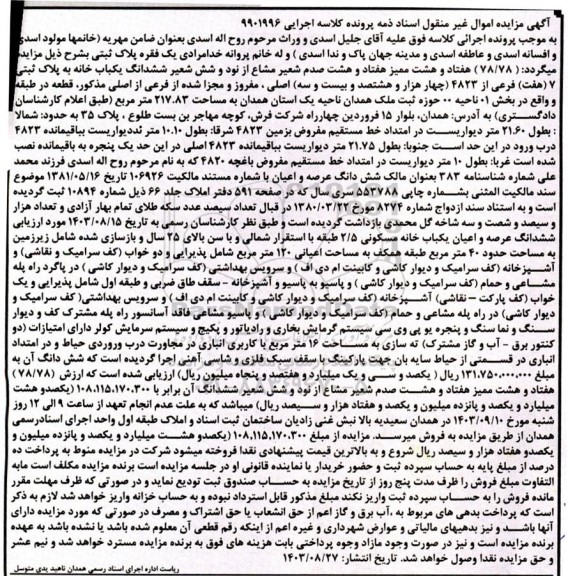 آگهی مزایده اموال غیر منقول اسناد ذمه پرونده کلاسه اجرایی ۹۹۰۱۹۹۶
به موجب پرونده اجرائی کلاسه فوق علیه آقای جلیل اسدی و وراث مرحوم روح اله اسدی بعنوان ضامن مهریه (خانمها مولود اسدی
و افسانه اسدی و عاطفه اسدی و مدینه جهان پاک و ندا اسدی ) و له خانم پروانه خدامرادی یک فقره پلاک ثبتی بشرح ذیل مزایده
میگردد: ( ۷۸/۷۸ ) هفتاد و هشت ممیز هفتاد و هشت صدم شعیر مشاع از نود و شش شعیر ششدانگ یکباب خانه به پلاک ثبتی
۷ (هفت) فرعی از ۴۸۲۳ (چهار هزار و هشتصد و بیست و سه) اصلی ، مفروز و مجزا شده از فرعی از اصلی مذکور، قطعه در طبقه
و واقع در بخش ۰۱ ناحیه ۰۰ حوزه ثبت ملک همدان ناحیه یک استان همدان به مساحت ۲۱۷.۸۳ متر مربع (طبق اعلام کارشناسان
دادگستری) به آدرس: همدان، بلوار ۱۵ فروردین چهارراه شرکت فرش، کوچه مهاجر بن بست طلوع ، پلاک ۳۵ به حدود: شمالا
: بطول ۲۱.۶۰ متر دیواریست در امتداد خط مستقیم مفروض بزمین ۴۸۲۳ شرقا: بطول ۱۰.۱۰ متر دیواریست بباقیمانده ۴۸۲۳
درب ورود در این حد است جنوبا: بطول ۲۱.۷۵ متر دیواریست بباقیمانده ۴۸۲۳ اصلی در این حد یک پنجره به باقیمانده نصب
شده است غربا: بطول ۱۰ متر دیواریست در امتداد خط مستقیم مفروض باغچه ۴۸۲۰ که به نام مرحوم روح اله اسدی فرزند محمد
علی شماره شناسنامه ۳۸۳ بعنوان مالک شش دانگ عرصه و اعیان با شماره مستند مالکیت ۱۰۶۹۲۶ تاریخ ۱۳۸۱/۰۵/۱۶ موضوع
سند مالکیت المثنی بشماره چاپی ۵۵۳۷۸۸ که در صفحه ۵۹۱ دفتر املاک جلد ۶۶ ذیل شماره ۱۰۸۹۴ ثبت گردیده
است و به استناد سند ازدواج شماره ۸۲۷۴ مورخ ۱۳۸۰/۰۳/۲۲ در قبال تعداد سیصد عدد سکه طلای تمام بهار آزادی و تعداد هزار
و سیصد و شصت و سه شاخه گل محمدی بازداشت گردیده است و طبق نظر کارشناسان رسمی به تاریخ ۱۴۰۳/۰۸/۱۵ مورد ارزیابی
ششدانگ عرصه و اعیان یکباب خانه مسکونی ۲/۵ طبقه با استقرار شمالی و با سن بالای ۲۵ سال و بازسازی شده شامل زیرزمین
به مساحت حدود ۴۰ متر مربع طبقه همکف به مساحت اعیانی ۱۲۰ متر مربع شامل پذیرایی و دو خواب (کف سرامیک و نقاشی) و
آشپزخانه (کف سرامیک و دیوار کاشی و کابینت ام دی اف ) و سرویس بهداشتی (کف سرامیک و دیوار کاشی ) در پاگرد راه پله
مشاعی و حمام (کف سرامیک و دیوار کاشی ) و پاسیو به پاسیو و آشپزخانه – سقف طاق ضربی و طبقه اول شامل پذیرایی و یک
خواب (کف پارکت – نقاشی) آشپزخانه (کف سرامیک و دیوار کاشی و کابینت ام دی اف ) و سرویس بهداشتی( کف سرامیک و
دیوار کاشی) در راه پله مشاعی و حمام (کف سرامیک و دیوار کاشی ) و پاسیو مشاعی فاقد آسانسور راه پله مشترک کف و دیوار
سنگ و نما سنگ و پنجره یو پی وی سی سیستم گرمایش بخاری و رادیاتور و پکیج و سیستم سرمایش کولر دارای امتیازات (دو
کنتور برق – آب و گاز مشترک) ته سازی به مساحت ۱۶ متر مربع با کاربری انباری در مجاورت درب وروردی حیاط و در امتداد
انباری در قسمتی از حیاط سایه بان جهت پارکینگ با سقف سبک فلزی و شاسی آهنی اجرا گردیده است که شش دانگ آن به
مبلغ ۱۳۱.۷۵۰.۰۰۰.۰۰۰ ریال ( یکصد و سی و یک میلیارد و هفتصد و پنجاه میلیون ریال) ارزیابی شده است که ارزش (۷۸/۷۸ )
هفتاد و هشت ممیز هفتاد و هشت صدم شعیر مشاع از نود و شش شعیر ششدانگ آن برابر با ۱۰۸.۱۱۵.۱۷۰.۳۰۰ (یکصدو هشت
میلیارد و یکصد و پانزده میلیون و یکصد و هفتاد هزار و سیصد ریال) میباشد که به علت عدم انجام تعهد از ساعت ۹ الی ۱۲ روز
شنبه مورخ ۱۴۰۳/۰۹/۱۰ در همدان سعیدیه بالا نبش غنی زادیان ساختمان ثبت اسناد و املاک طبقه اول واحد اجرای اسنادرسمی
همدان از طریق مزایده به فروش میرسد. مزایده از مبلغ ۱۰۸.۱۱۵.۱۷۰.۳۰۰ (یکصدو هشت میلیارد و یکصد و پانزده میلیون و
یکصدو هفتاد هزار و سیصد ریال شروع و به بالاترین قیمت پیشنهادی نقدا فروخته میشود شرکت در مزایده منوط به پرداخت ده
درصد از مبلغ پایه به حساب سپرده ثبت و حضور خریدار یا نماینده قانونی او در جلسه مزایده است برنده مزایده مکلف است مابه
التفاوت مبلغ فروش را ظرف مدت پنج روز از تاریخ مزایده به حساب صندوق ثبت تودیع نماید و در صورتی که ظرف مهلت مقرر
مانده فروش را به حساب سپرده ثبت واریز نکنند مبلغ مذکور قابل استرداد نبوده و به حساب خزانه واریز خواهد شد لازم به ذکر
است که پرداخت بدهی های مربوط به ،آب برق و گاز اعم از حق انشعاب یا حق اشتراک و مصرف در صورتی که مورد مزایده دارای
آنها باشد و نیز بدهیهای مالیاتی و عوارض شهرداری و غیره اعم از اینکه رقم قطعی آن معلوم شده باشد یا نشده باشد به عهده
برنده مزایده است و نیز در صورت وجود مازاد وجوه پرداختی بابت هزینه های فوق به برنده مزایده مسترد خواهد شد و نیم عشر
و حق مزایده نقدا وصول خواهد شد. تاریخ انتشار: ۱۴۰۳/۰۸/۲۷
ریاست اداره اجرای اسناد رسمی همدان ناهید یدی متوسل